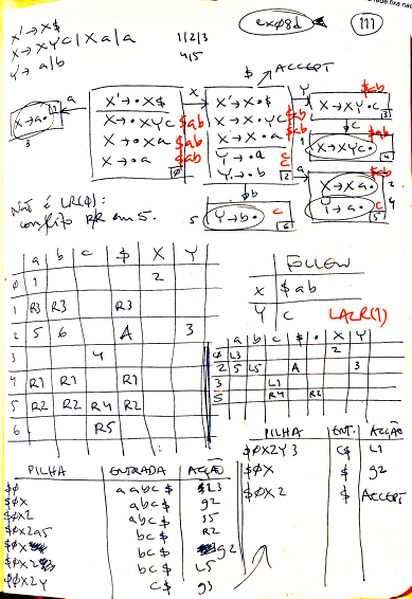 ex08d
111
X'→X$
X→XYc|Xa|a
Y→a|b
1/2/3
4/5
$ ACCEPT
X→a• 1
3
a
X'→•X$
X→•XYc $ab
X→•Xa $ab
X→•a $ab
0
X
X'→X•$
X→X•Yc $ab
X→X•a $ab
Y→•a c
Y→•b c
2
Y
$ab
X→XY•c 3
c
$ab
X→XYc• 4
1
a
$ab
X→Xa• 2
Y→a• c 4
5
b
5 Y→b• c
6
Não é LR(0):
conflito RR em 5.
a b c $ X Y
0 1 2
1 R3 R3 R3
2 5 6 A 3
3 4
4 R1 R1 R1
5 R2 R2 R4 R2
6 R5
FOLLOW
X $ab
Y c
LALR(1)
a b c $ • X Y
0 L3 2
2 L5 L5 A 3
3 L1
5 R4 R2
PILHA ENTRADA ACÇÃO
$0 aabc$ L3
$0X abc$ g2
$0X2 abc$ s5
$0X2a5 bc$ R2
$0X bc$ g2
$0X2 bc$ L5
$0X2Y c$ g3
PILHA ENT. ACÇÃO
$0X2Y3 c$ L1
$0X $ g2
$0X2 $ ACCEPT